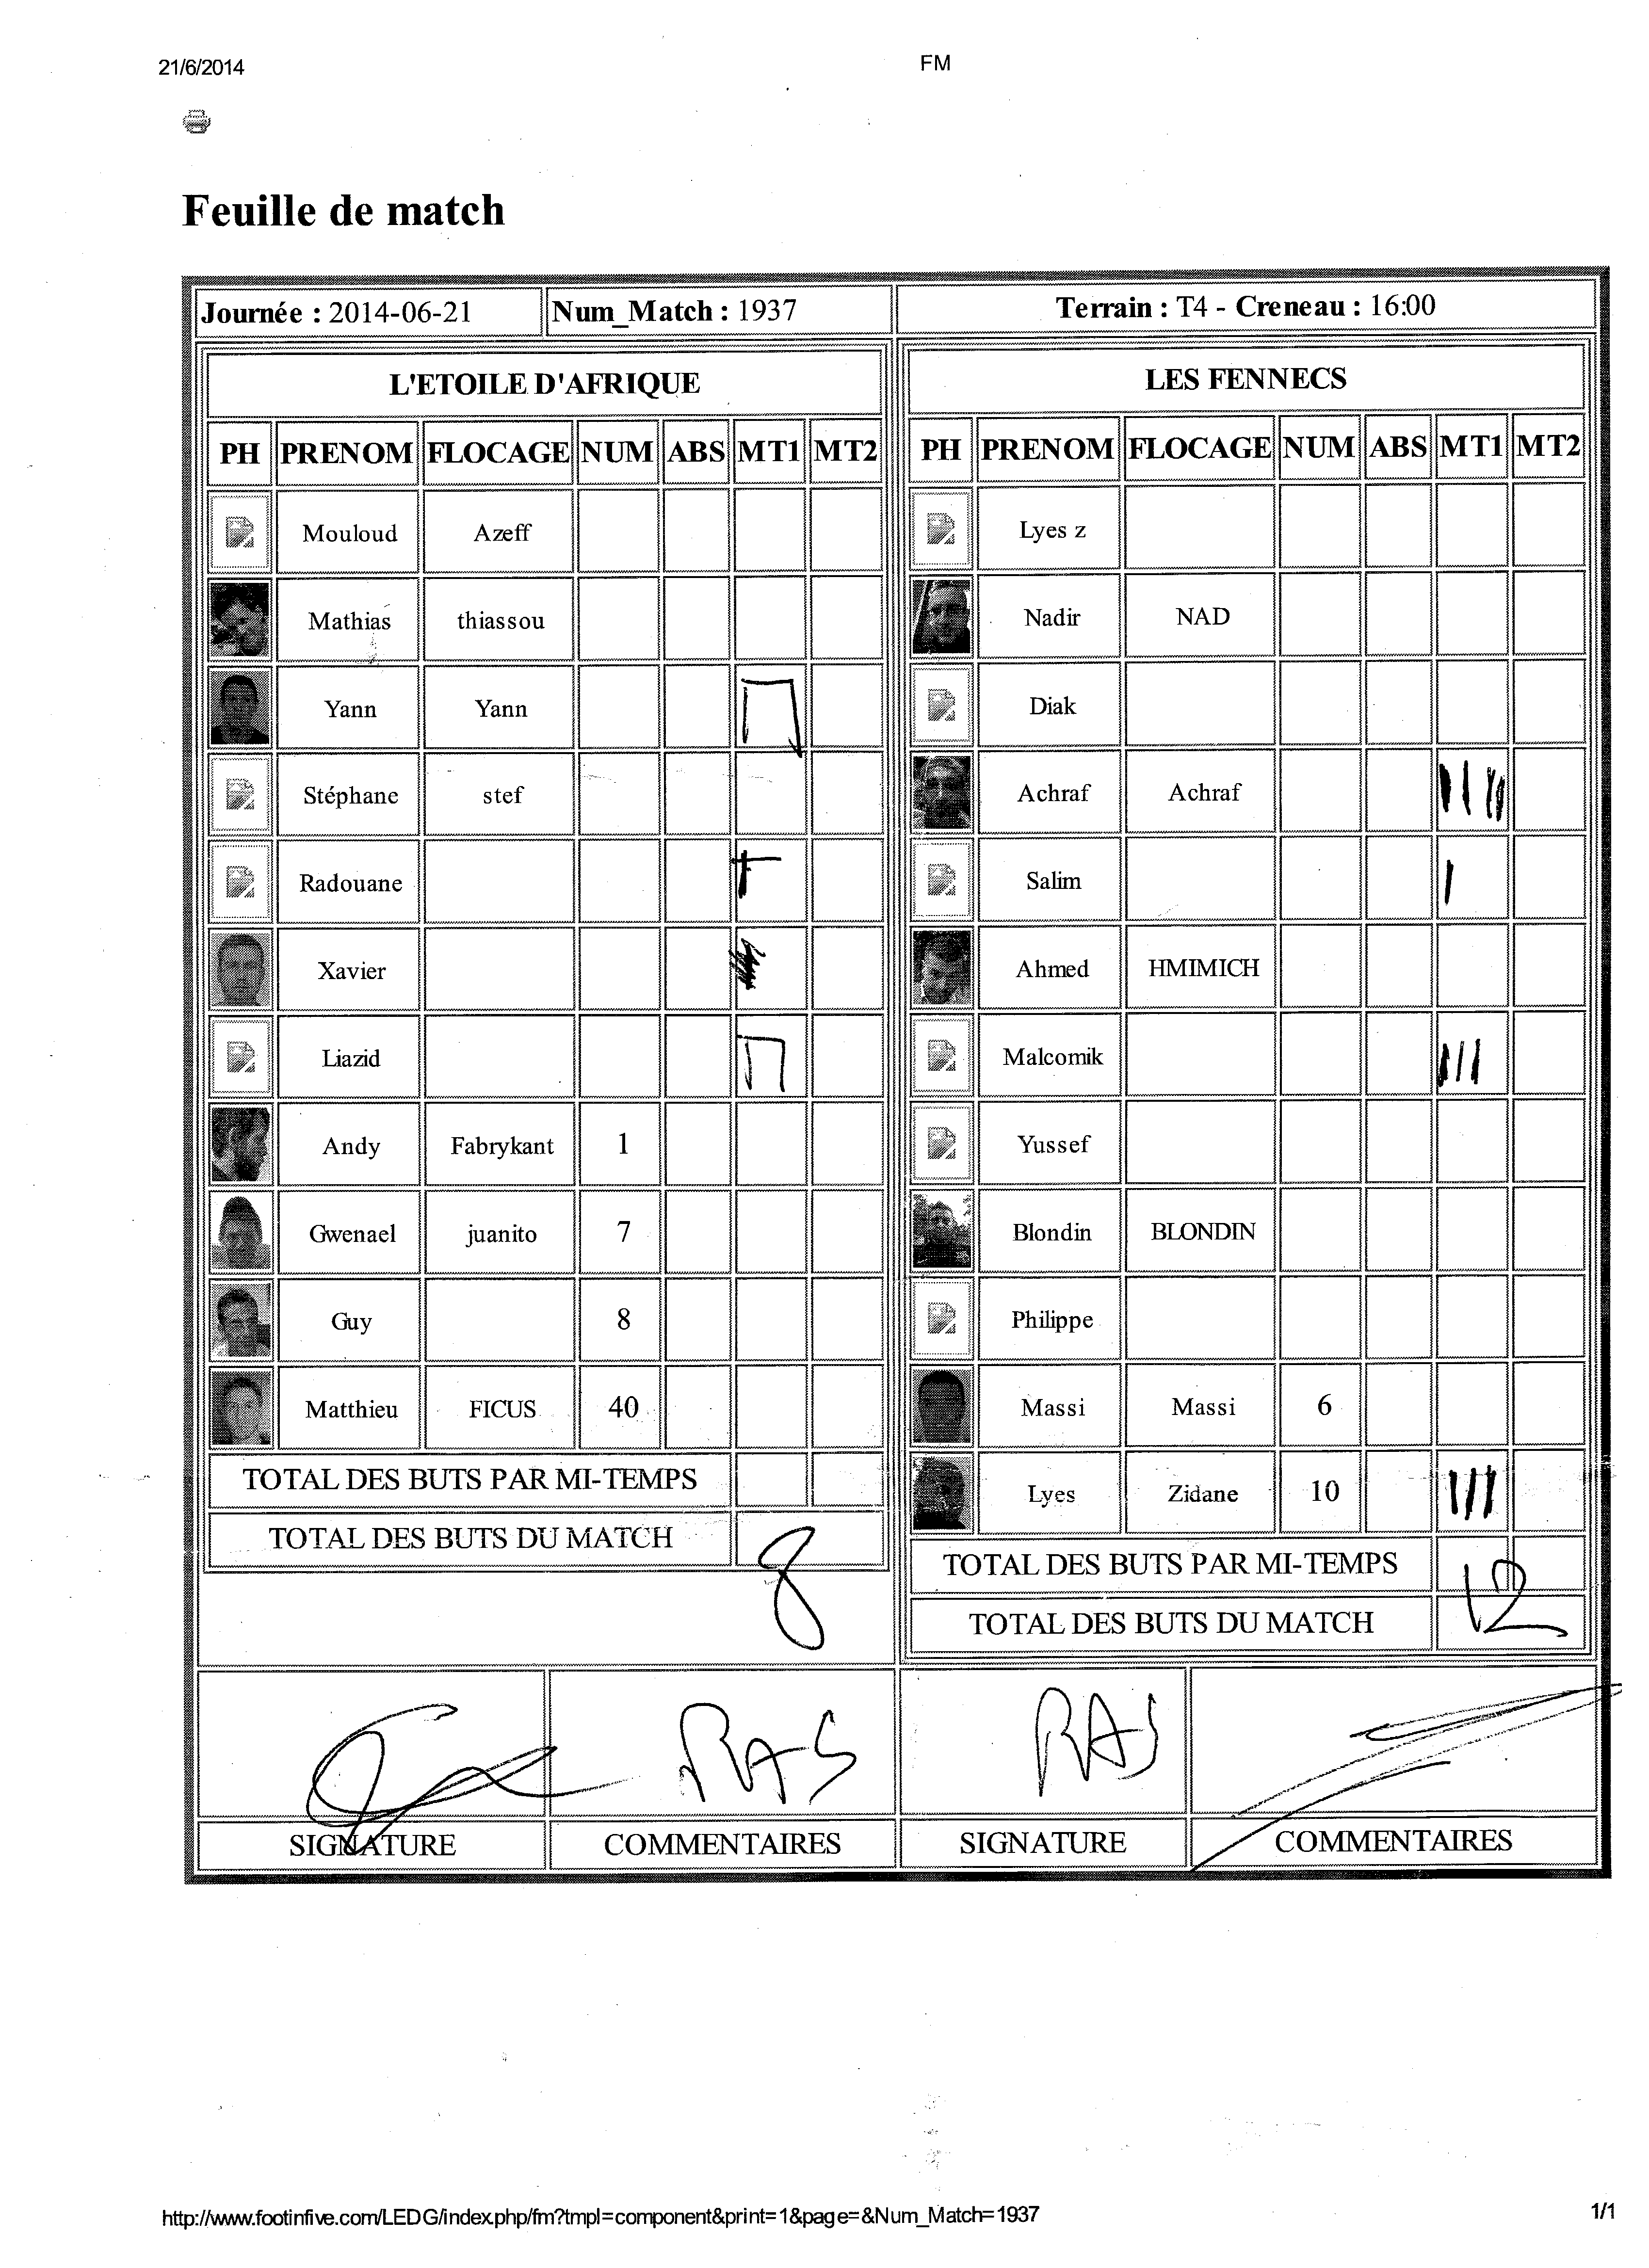 21/6/2014 FM
Feuille de match
Journée : 2014-06-21 Num_Match : 1937 Terrain : T4 - Creneau : 16:00
L'ETOILE D'AFRIQUE
PH PRENOM FLOCAGE NUM ABS MT1 MT2
Mouloud Azeff
Mathias thiassou
Yann Yann
Stéphane stef
Radouane
Xavier
Liazid
Andy Fabrykant 1
Gwenael juanito 7
Guy 8
Matthieu FICUS 40
TOTAL DES BUTS PAR MI-TEMPS
TOTAL DES BUTS DU MATCH 8
LES FENNECS
PH PRENOM FLOCAGE NUM ABS MT1 MT2
Lyes z
Nadir NAD
Diak
Achraf Achraf
Salim
Ahmed HMIMICH
Malcomik
Yussef
Blondin BLONDIN
Philippe
Massi Massi 6
Lyes Zidane 10
TOTAL DES BUTS PAR MI-TEMPS
TOTAL DES BUTS DU MATCH 12
RAS RAS
SIGNATURE COMMENTAIRES SIGNATURE COMMENTAIRES
http://www.footinfive.com/LEDG/index.php/fm?tmpl=component&print=1&page=&Num_Match=1937 1/1